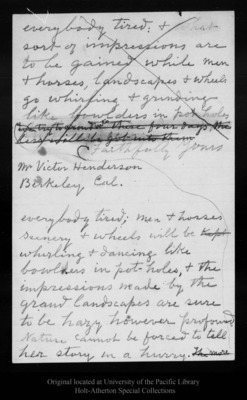 everybody tired; & what
sort of impressions are
to be gained while men
& horses, landscapes & wheels
go whirling & grinding
like bowlders in pot-holes
these four days, the
Faithfully yours
Mr Victor Henderson
Berkeley, Cal.
everybody tired; men & horses
scenery & wheels will be kept
whirling & dancing like
bowlders in pot-holes, & the
impressions made by the
grand landscapes are sure
to be hazy however profound
Nature cannot be forced to tell
her story in a hurry. The more
Original located at University of the Pacific Library
Holt-Atherton Special Collections